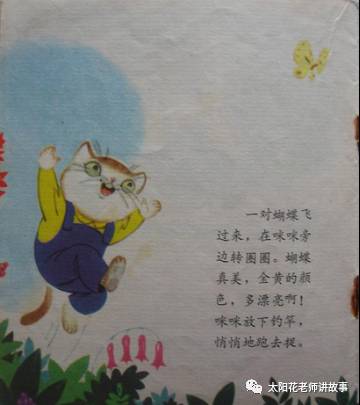 一对蝴蝶飞
过来，在咪咪旁
边转圈圈。蝴蝶
真美，金黄的颜
色，多漂亮啊！
咪咪放下钓竿，
悄悄地跑去捉。
太阳花老师讲故事